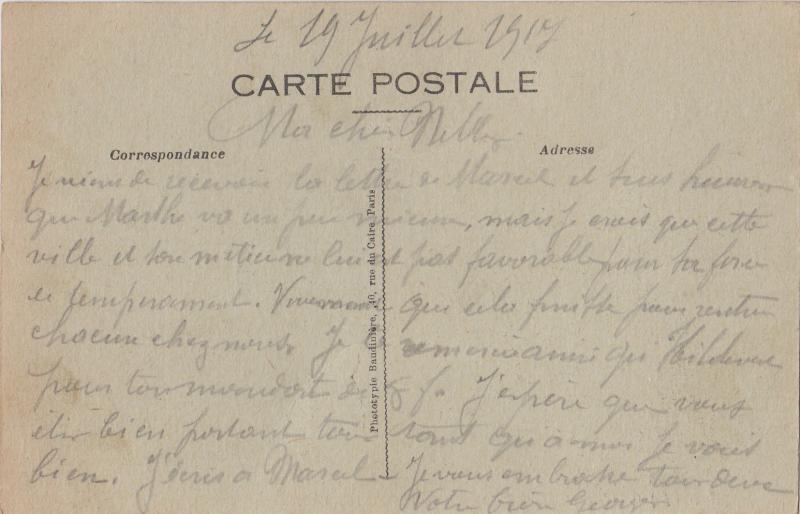 Le 19 Juillet 1917
CARTE POSTALE
Ma chère Nelly
Correspondance
Adresse
Je viens de recevoir la lettre de Marcel et suis heureux
que Marthe va un peu mieux, mais je crois que cette
ville et son métier ne lui est pas favorable pour sa force
et temperament. que cela finisse pour rentrer
chacun chez nous. Je te remercie ainsi qui
pour ton mandat de f. J'espère que vous
êtes bien portant tous tant qu'a moi je vais
bien. J'écris a Marcel - Je vous embrasse tous deux
Votre frère Georges
Phototypie Baudinière, 40, rue du Caire Paris